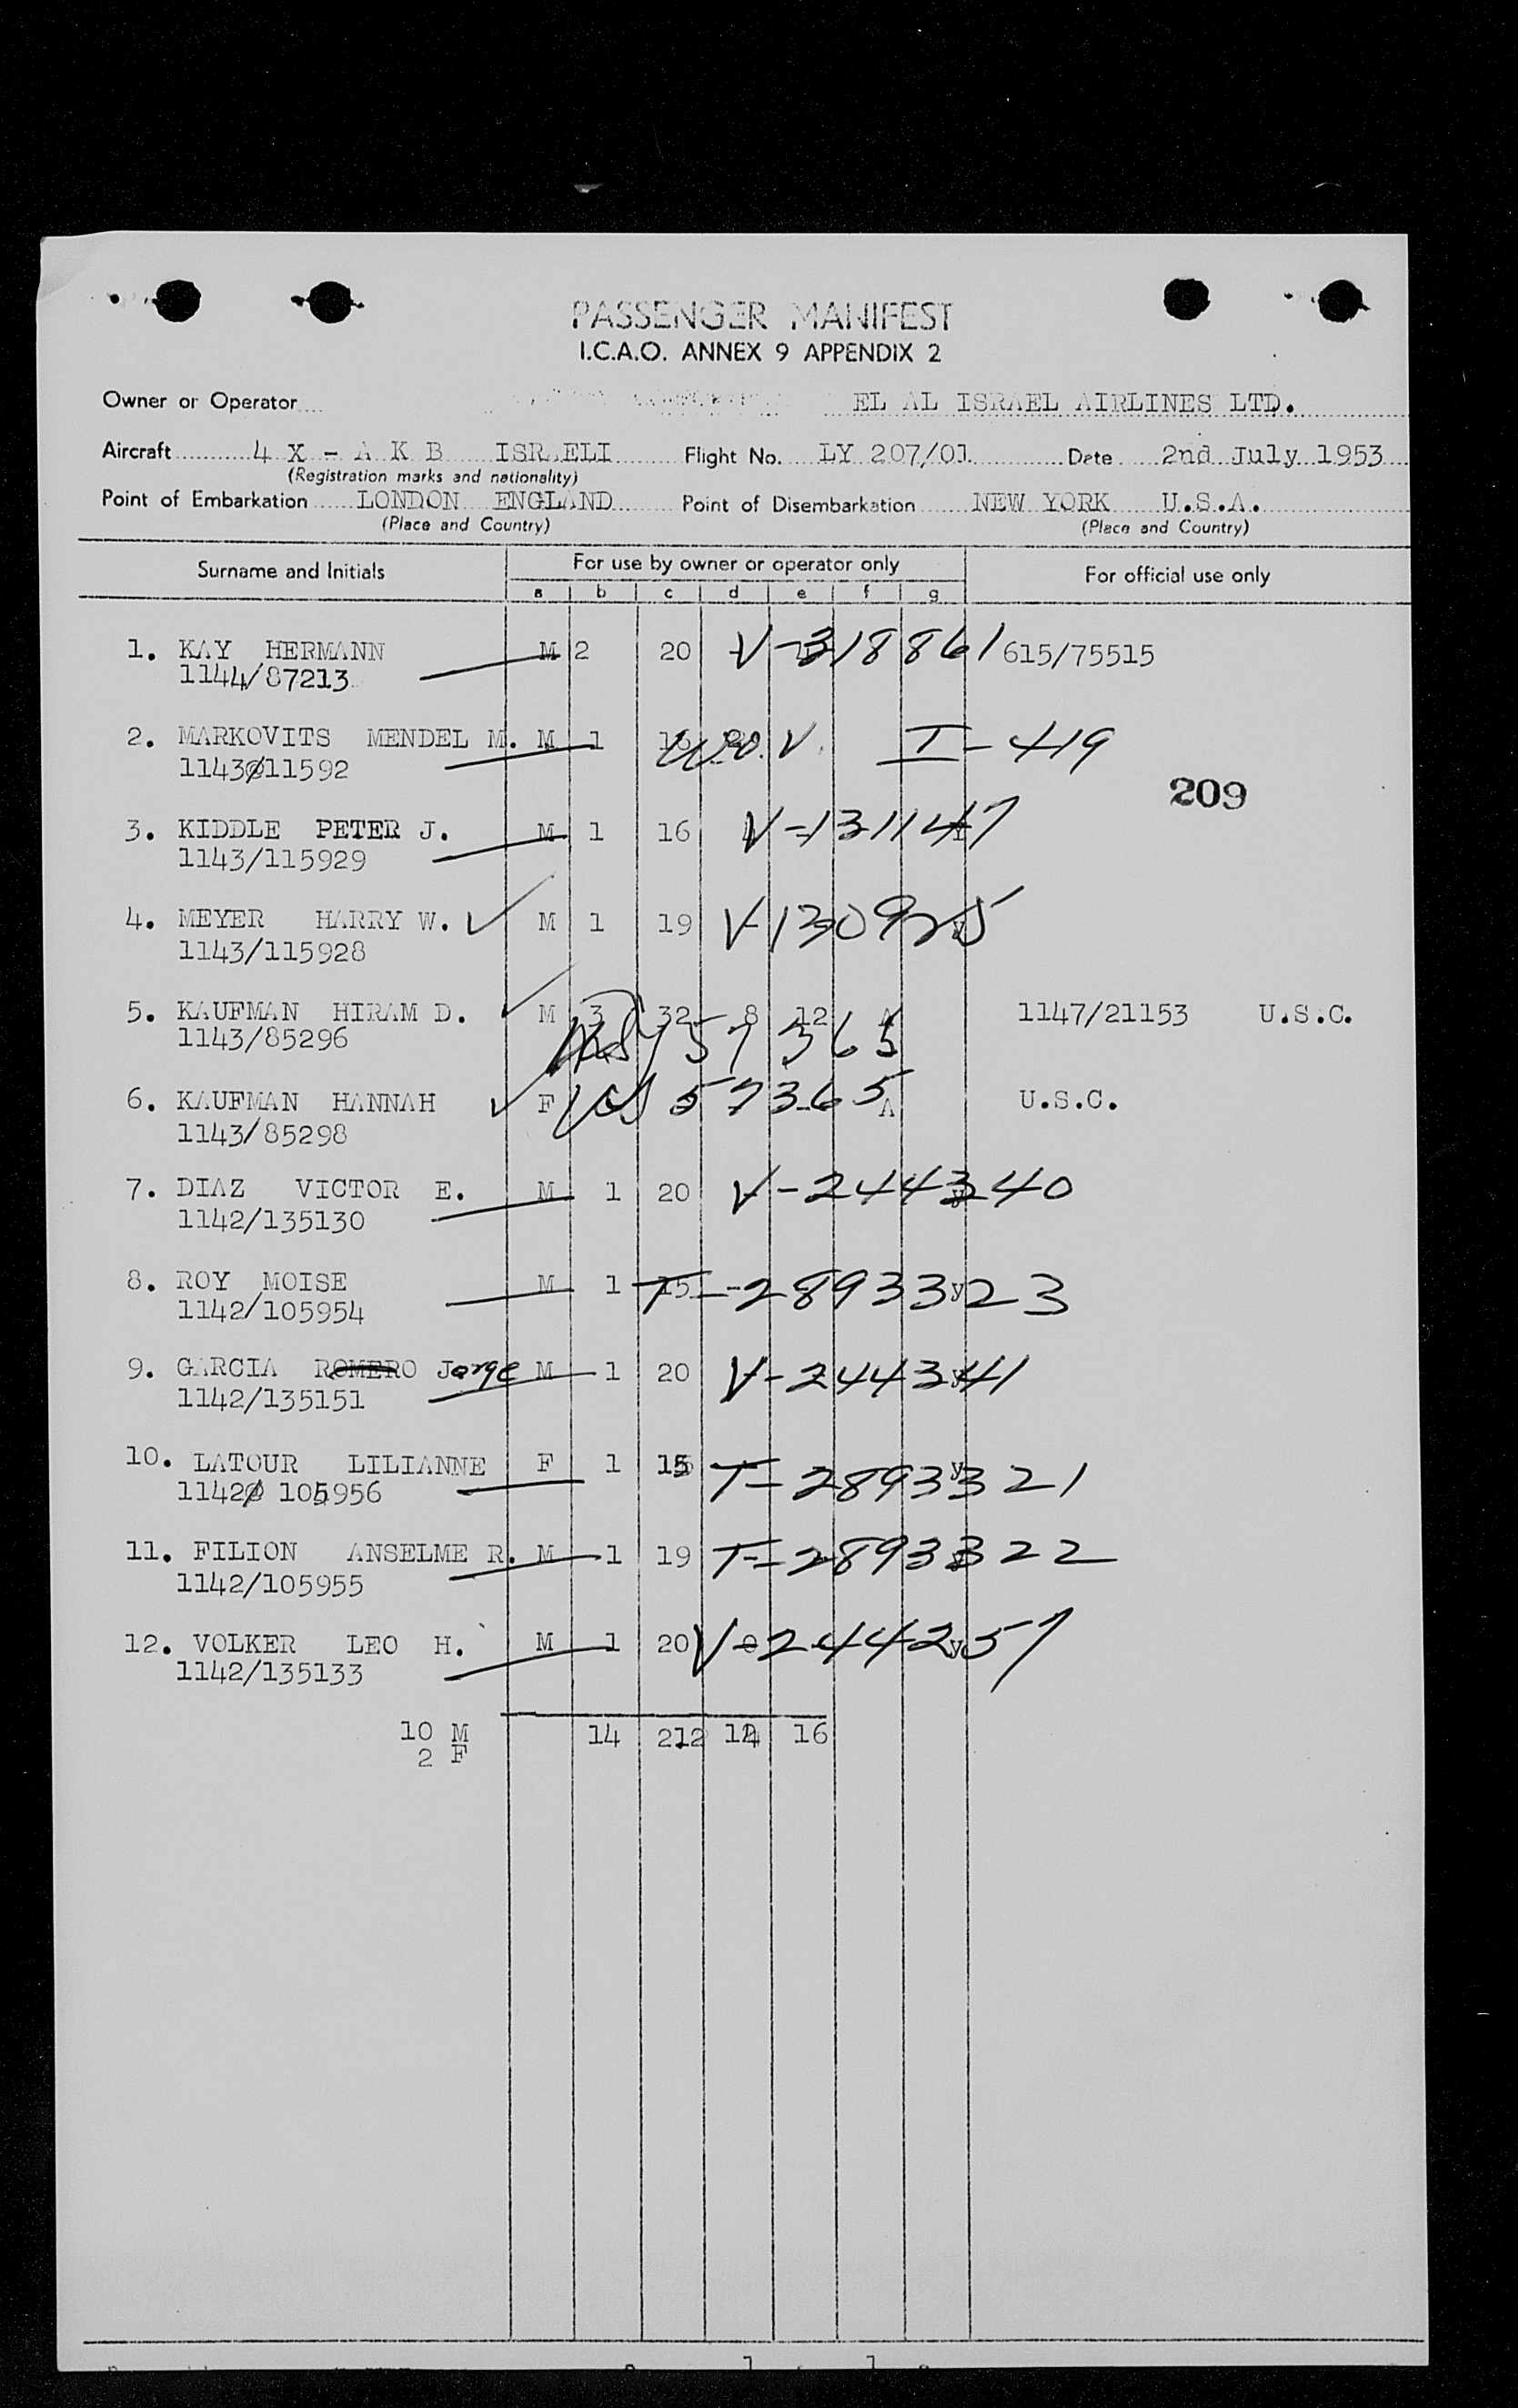 PASSENGER MANIFEST
I.C.A.O. ANNEX 9 APPENDIX 2
Owner or Operator EL AL ISRAEL AIRLINES LTD.
Aircraft 4 X - A K B ISRAELI Flight No. LY 207/01 Date 2nd July 1953
(Registration marks and nationality)
Point of Embarkation LONDON ENGLAND Point of Disembarkation NEW YORK U.S.A.
(Place and Country) (Place and Country)
Surname and Initials For use by owner or operator only For official use only
a b c d e f g
1. KAY HERMANN M 2 20 V-318861 615/75515
1144/87213
2. MARKOVITS MENDEL M. M 1 V. I-419
1143/11592
209
3. KIDDLE PETER J. M 1 16 V-131147
1143/115929
4. MEYER HARRY W. ✓ M 1 19 V-130925
1143/115928
5. KAUFMAN HIRAM D. ✓ M 3 32 8 12 A 1147/21153 U.S.C.
1143/85296 57365
6. KAUFMAN HANNAH ✓ F 57365 A U.S.C.
1143/85298
7. DIAZ VICTOR E. M 1 20 V-2443240
1142/135130
8. ROY MOISE M 1 15 T-2893323
1142/105954
9. GARCIA ROMERO Jorge M 1 20 V-244341
1142/135151
10. LATOUR LILIANNE F 1 15 T-2893321
1142/ 105956
11. FILION ANSELME R. M 1 19 T-2893322
1142/105955
12. VOLKER LEO H. M 1 20 V-2444257
1142/135133
10 M 14 212 16
2 F